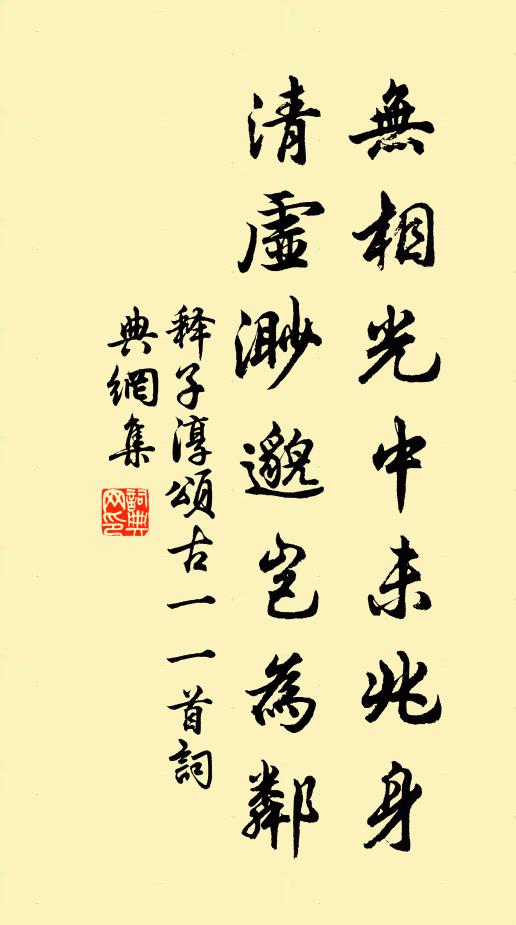 無相光中未兆身
清虛渺邈豈為鄰
释子淳頌古一一首詞
典網集
詞典網印